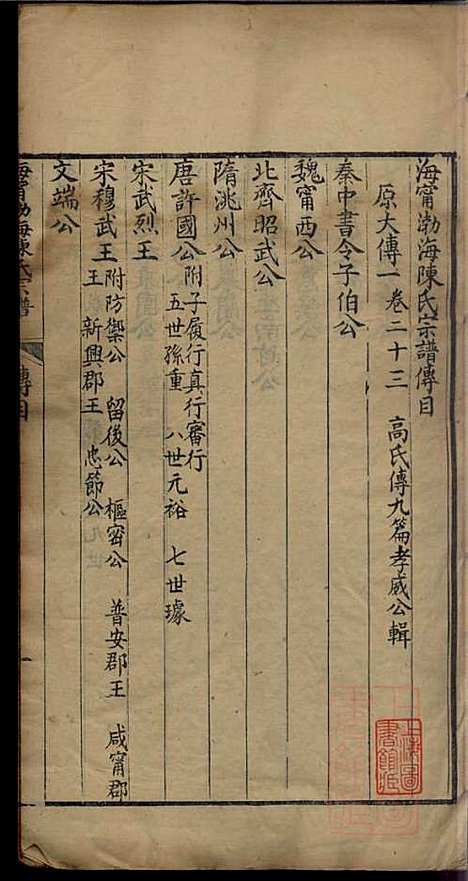 海甯渤海陳氏宗譜傳目
原大傳一卷二十三　高氏傳九篇孝威公輯
秦中書令子伯公
魏甯西公
北齊昭武公
隋洮州公
唐許國公附子履行真行審行
五世孫重　八世元裕　七世璩
宋武烈王
宋穆武王附防禦公　留後公　樞密公　普安郡王　咸甯郡
王　新興郡王　忠節公
文端公
海甯渤海陳氏宗譜　傳目　一
上海圖書館藏